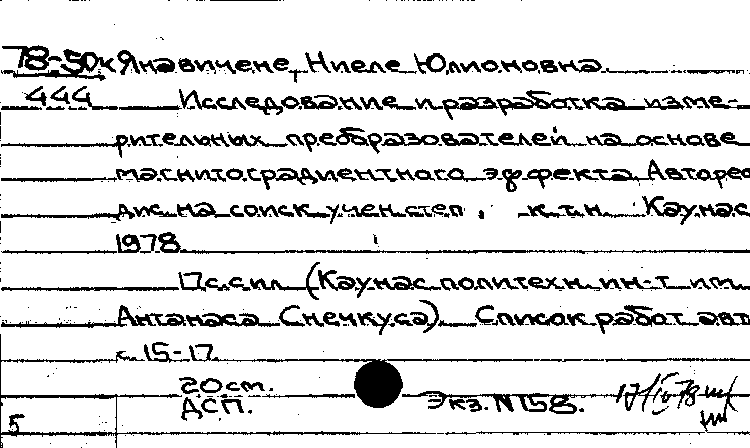 78-50к Янавичене, Ниеле Юлионовна.
444 Исследование и разработка изме-
рительных преобразователей на основе
магнитоградиентного эффекта. Авторе
дис. на соиск. учен. степ. к.т.н. Каунас
1978.
17 с. с ил. (Каунас. политехн. ин-т им.
Антанаса Снечкуса). Список работ авт
с. 15-17.
20 см.
ДСП. Экз. N 158.
5